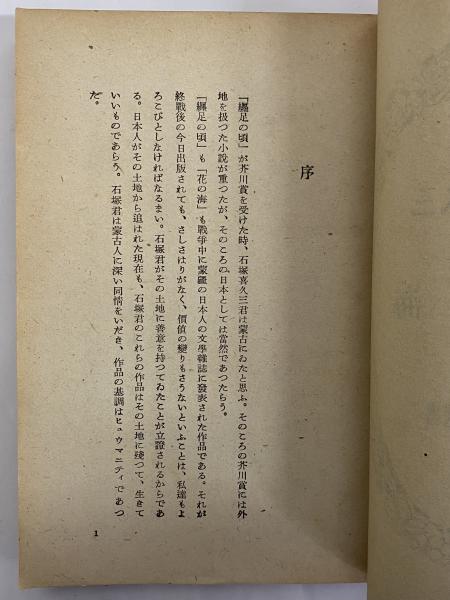 序
「纏足の頃」が芥川賞を受けた時、石塚喜久三君は蒙古にゐたと思ふ。そのころの芥川賞には外
地を扱つた小説が重つたが、そのころの日本としては當然であつたらう。
「纏足の頃」も「花の海」も戰爭中に蒙疆の日本人の文學雜誌に發表された作品である。それが
終戰後の今日出版されても、さしさはりがなく、價値の變りもさうないといふことは、私達もよ
ろこびとしなければなるまい。石塚君がその土地に善意を持つてゐたことが立證されるからであ
る。日本人がその土地から追はれた現在も、石塚君のこれらの作品はその土地に殘つて、生きて
いいものであらう。石塚君は蒙古人に深い同情をいだき、作品の基調はヒュウマニティであつ
だ。
1